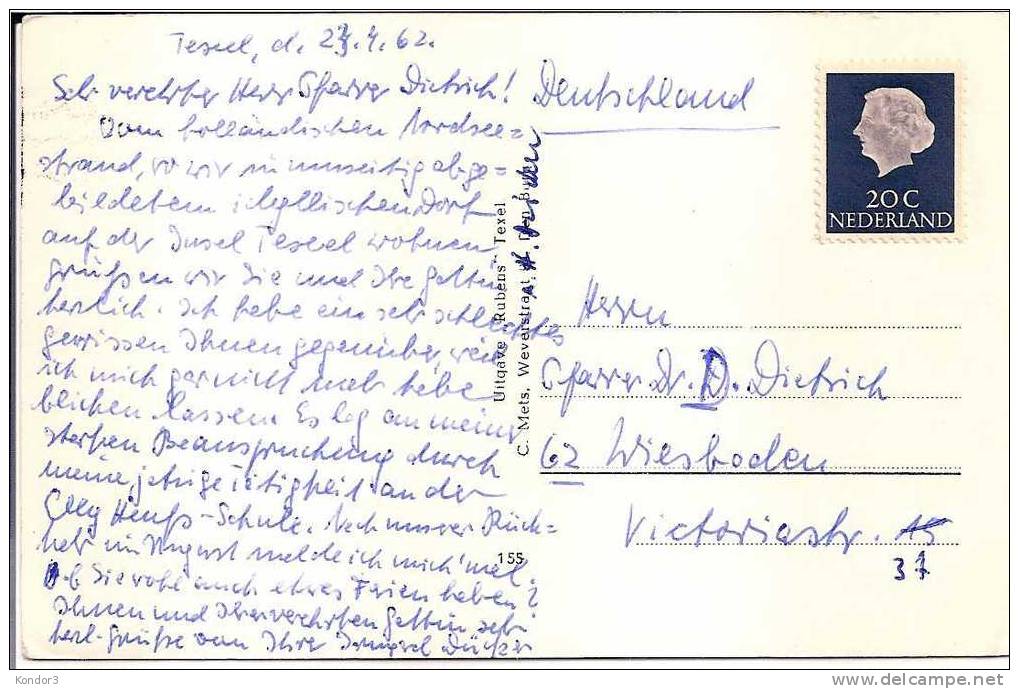 Texel, d. 23.7.62.
Sehr verehrter Herr Pfarrer Dietrich!
Vom holländischen Nordsee=
strand, wo wir in umseitig abge=
bildetem idyllischen Dorf
auf der Insel Texel wohnen
grüßen wir Sie und Ihre Gattin
herzlich. Ich habe ein sehr schlechtes
Gewissen Ihnen gegenüber, weil
ich mich gar nicht mehr habe
blicken lassen. Es lag an meiner
starken Beanspruchung durch
meine jetzige Tätigkeit an der
Elly Heuß-Schule. Nach unserer Rück=
kehr im August melde ich mich mal.
Ob Sie wohl auch etwas Ferien haben?
Ihnen und Ihrer verehrten Gattin sehr
herzl. Grüße von Ihrer Irmgard
Uitgave „Rubens" Texel
C. Mets, Weverstraat Den Burg
155
Deutschland
20 C
NEDERLAND
Herrn
Pfarrer Dr. D. Dietrich
62 Wiesbaden
Victoriastr. 15
37
Kondor3
delcampe.net